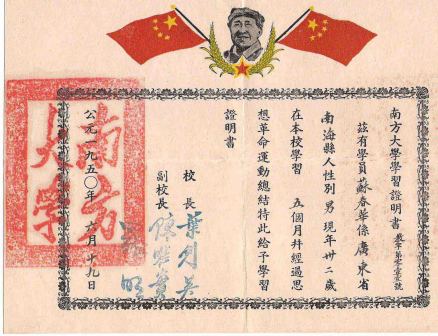 南方大學學習證明書
茲有學員蘇春華係廣東省
南海縣人性別男現年卅二歲
在本校學習 五個月幷經過思
想革命運動總結特此給予學習
證明書
校長 葉劍英
副校長 陳唯實
羅明
公元一九五〇年 六月 十九日
南方
大學